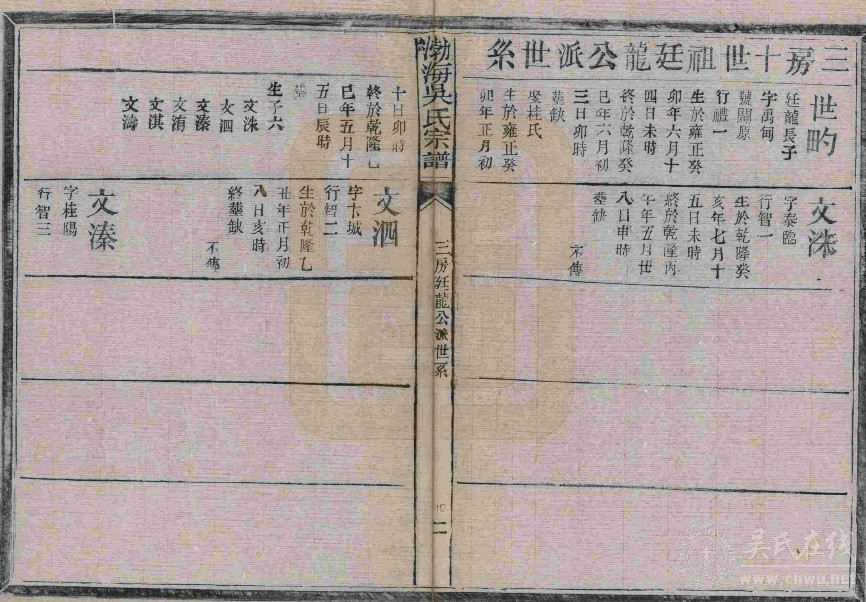 三房十世祖廷龍公派世系
世畇
廷龍長子
字禹甸
號關原
行禮一
生於雍正癸
卯年六月十
四日未時
終於乾隆癸
巳年六月初
三日卯時
塟缺
娶桂氏
生於雍正癸
卯年正月初
十日卯時
終於乾隆乙
巳年五月十
五日辰時
塟
生子六
文洙
文泗
文溱
文洧
文淇
文濤
文洙
字泰臨
行智一
生於乾隆癸
亥年七月十
五日未時
終於乾隆丙
午年五月廿
八日申時
塟缺
不傳
文泗
字卞城
行智二
生於乾隆乙
丑年正月初
八日亥時
終塟缺
不傳
文溱
字桂陽
行智三
渤海吳氏宗譜
三房廷龍公派世系
二
吴氏在线
www.cnwu.net